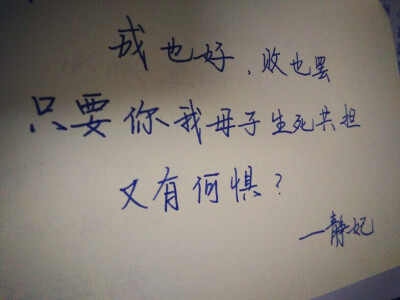 成也好，败也罢
只要你我母子生死共担
又有何惧？
—静妃